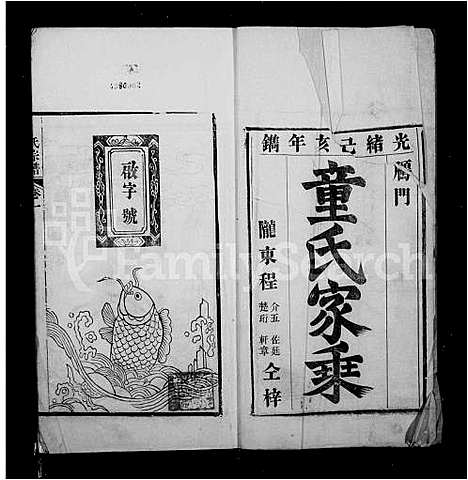 光緒己亥年鐫
鴈門
童氏家乘
隴東程
介五 佐廷
楚珩 軒章
仝梓
啟字號
氏宗譜
卷一
FamilySearch